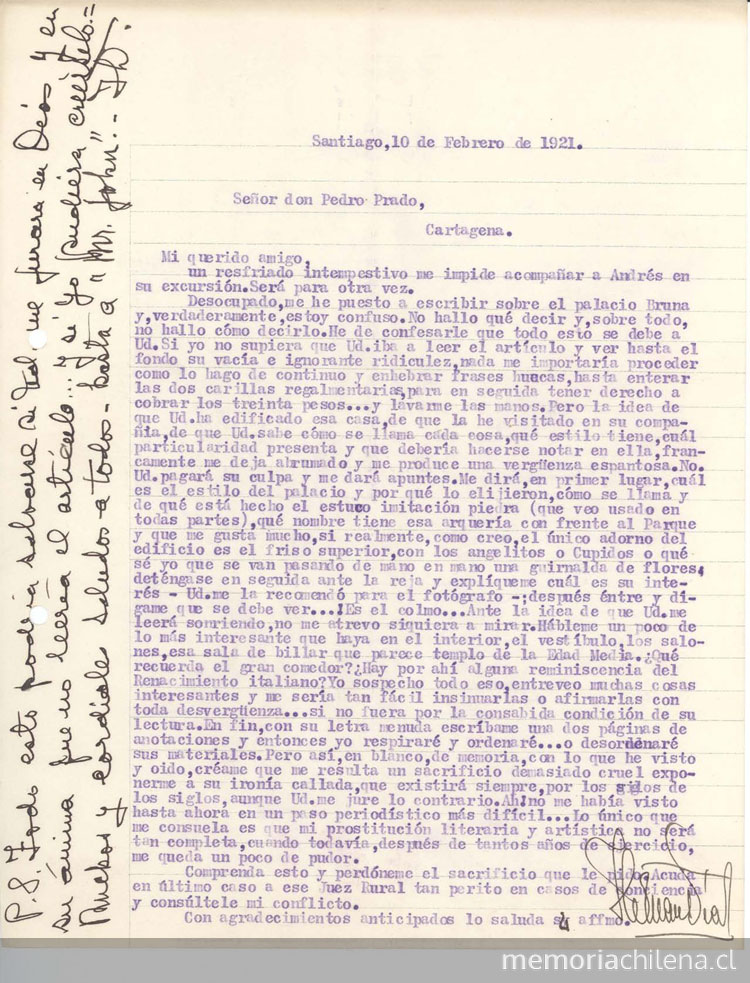 Santiago,10 de Febrero de 1921.
Señor don Pedro Prado,
Cartagena.
Mi querido amigo,
un resfriado intempestivo me impide acompañar a Andrés en
su excursión.Será para otra vez.
Desocupado,me he puesto a escribir sobre el palacio Bruna
y,verdaderamente,estoy confuso.No hallo qué decir y,sobre todo,
no hallo cómo decirlo.He de confesarle que todo esto se debe a
Ud.Si yo no supiera que Ud.iba a leer el artículo y ver hasta el
fondo su vacía e ignorante ridiculez,nada me importaría proceder
como lo hago de continuo y enhebrar frases huecas,hasta enterar
las dos carillas regalmentarias,para en seguida tener derecho a
cobrar los treinta pesos...y lavarme las manos.Pero la idea de
que Ud.ha edificado esa casa,de que la he visitado en su compa-
ñia,de que Ud.sabe cómo se llama cada cosa,qué estilo tiene,cuál
particularidad presenta y que debería hacerse notar en ella,fran-
camente me deja abrumado y me produce una vergüenza espantosa.No.
Ud.pagará su culpa y me dará apuntes.Me dirá,en primer lugar,cuál
es el estilo del palacio y por qué lo elijieron,cómo se llama y
de qué está hecho el estuco imitación piedra (que veo usado en
todas partes),qué nombre tiene esa arquería con frente al Parque
y que me gusta mucho,si realmente,como creo,el único adorno del
edificio es el friso superior,con los angelitos o Cupidos o qué
sé yo que se van pasando de mano en mano una guirnalda de flores;
deténgase en seguida ante la reja y explíqueme cuál es su inte-
rés - Ud.me la recomendó para el fotógrafo -;después éntre y dí-
game que se debe ver...!Es el colmo...Ante la idea de que Ud.me
leerá sonriendo,no me atrevo siquiera a mirar.Hábleme un poco de
lo más interesante que haya en el interior,el vestíbulo,los salo-
nes,esa sala de billar que parece templo de la Edad Media.¿Qué
recuerda el gran comedor?¿Hay por ahí alguna reminiscencia del
Renacimiento italiano?Yo sospecho todo eso,entreveo muchas cosas
interesantes y me sería tan fácil insinuarlas o afirmarlas con
toda desvergüenza...si no fuera por la consabida condición de su
lectura.En fin,con su letra menuda escríbame una dos páginas de
anotaciones y entonces yo respiraré y ordenaré...o desordenaré
sus materiales.Pero así,en blanco,de memoria,con lo que he visto
y oido,créame que me resulta un sacrificio demasiado cruel expo-
nerme a su ironía callada,que existirá siempre,por los siglos de
los siglos,aunque Ud.me jure lo contrario.Ah!no me había visto
hasta ahora en un paso periodístico más difícil...Lo único que
me consuela es que mi prostitución literaria y artística no será
tan completa,cuando todavía,después de tantos años de ejercicio,
me queda un poco de pudor.
Comprenda esto y perdóneme el sacrificio que le pido.Acuda
en último caso a ese Juez Rural tan perito en casos de conciencia
y consúltele mi conflicto.
Con agradecimientos anticipados lo saluda su affmo.
Hernan Diaz
P.S. Todo esto podría salvarse si Ud. me jurara en Dios y en
su ánima que no leería el artículo... y si yo pudiera creérselo.=
Muchos y cordiales saludos a todos - hasta a "Mr. John".- HD.
memoriachilena.cl